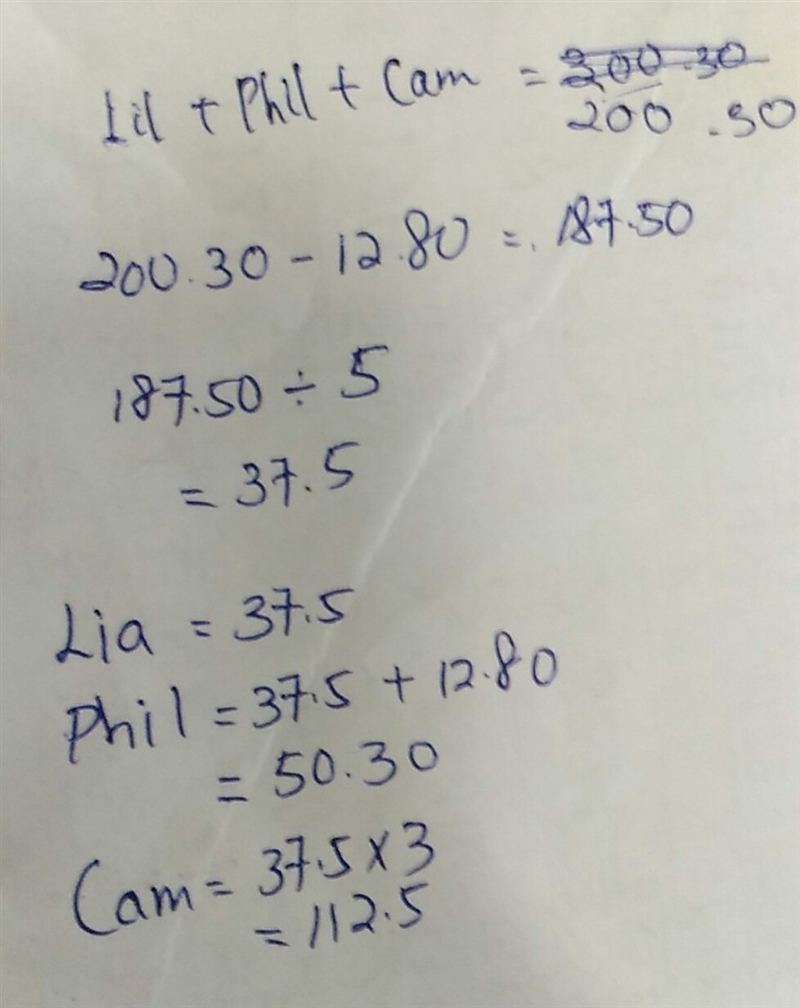 Lil + Phil + Cam = 200.30
200.30
200.30 - 12.80 = 187.50
187.50 ÷ 5
= 37.5
Lia = 37.5
Phil = 37.5 + 12.80
= 50.30
Cam = 37.5 x 3
= 112.5